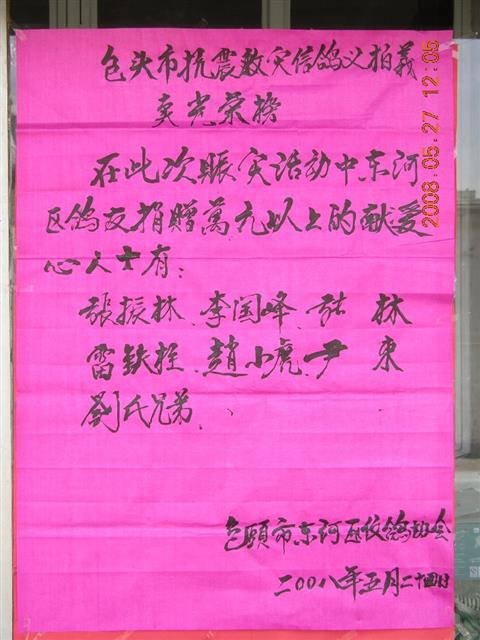 包头市抗震救灾信鸽义拍義
卖光荣榜
在此次赈灾活动中东河
区鸽友捐赠萬元以上的献爱
心人士有：
張振林、李国峰、張 林
雷铁拴、趙小虎、尹 東
劉氏兄弟、
包頭市东河区信鸽协会
二00八年五月二十四日
2008.05.27 12:05